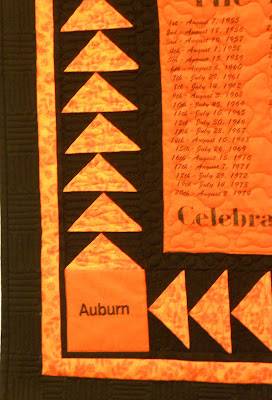 The
1st - August 7, 1955
2nd - August 12, 1956
3rd - August 1957
4th - August 1958
5th - August 1959
6th - August 1960
7th - July 29, 1961
8th - July 14, 1962
9th - August 1963
10th - July 25, 1964
11th - July 10, 1965
12th - July 30, 1966
13th - July 22, 1967
14th - August 10, 1968
15th - July 26, 1969
16th - August 15, 1970
17th - August 7, 1971
18th - July 29, 1972
19th - July 14, 1973
20th - August 1974
Celebra
Auburn